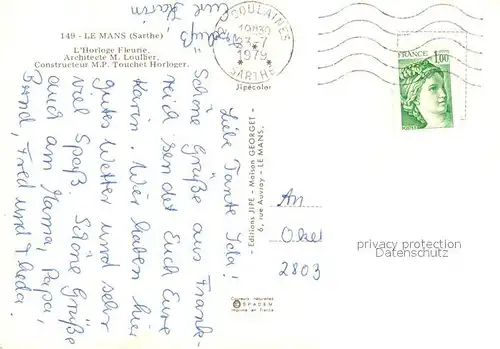 149 - LE MANS (Sarthe)
L'Horloge Fleurie,
Architecte M. Loullier,
Constructeur M.P. Touchet Horloger.
COULAINES
10H30
23-7
1979
SARTHE
FRANCE
1,00
POSTES
Jipécolor
- Editions JIPE - Maison GEORGET -
6, rue Auvray - LE MANS.
Couleurs naturelles
SPADEM
Imprimé en France
Liebe Tante Ida!
Schöne Grüße aus Frank-
reich sendet Euch Eure
Karin. Wir haben hier
gutes Wetter und sehr
viel Spaß. Schöne Grüße
auch am Mama, Papa,
Bernd, Fred und Theda.
Gruß
Eure Karin
An
2803
privacy protection
Datenschutz